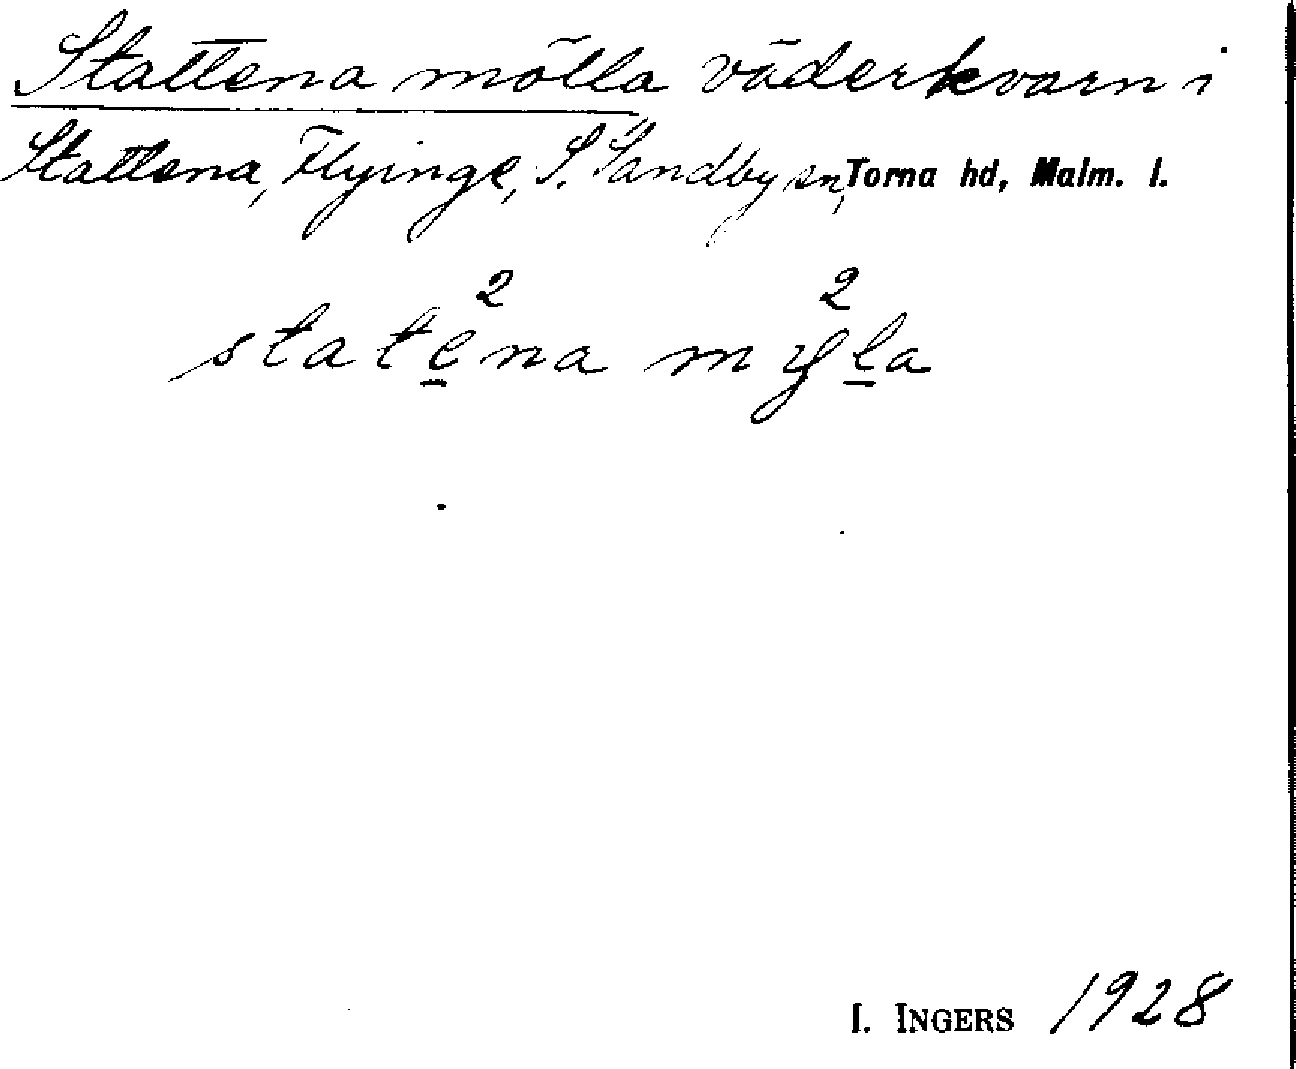 Stattena mölla väderkvarn i
Stattena, Flyinge, S. Sandby sn, Torna hd, Malm. l.
2 2
statena myla
I. INGERS 1928